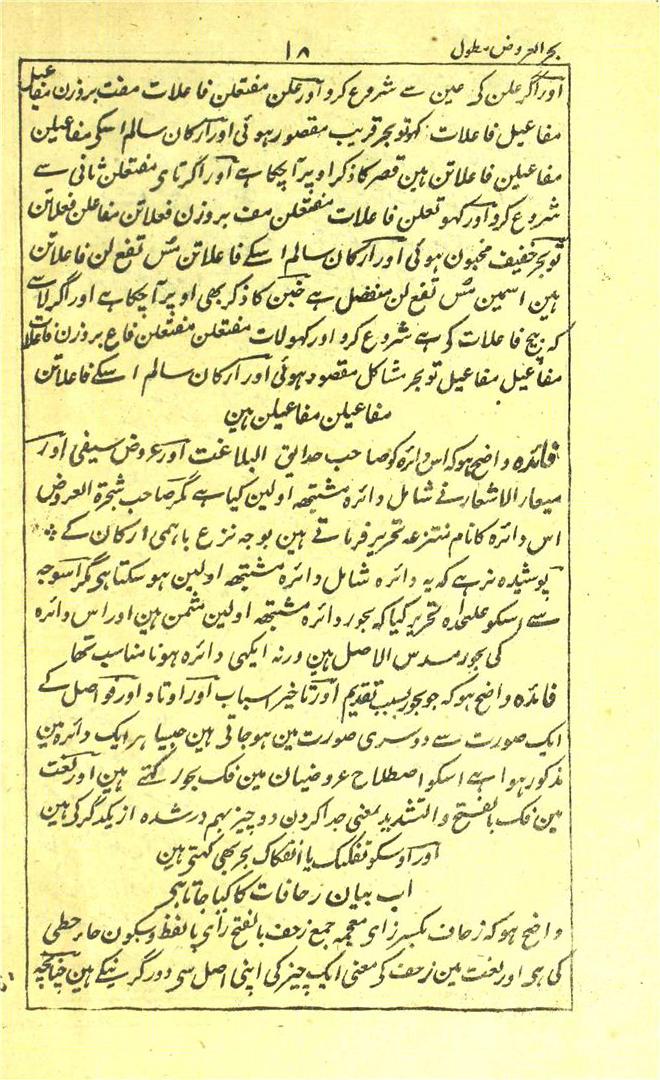 بحر العروض مطول ۱۸
اور اگر علن کی عین سے شروع کرو اور علن مفتعلن فاعلات مفت بروزن مفاعیل
مفاعیل فاعلات کہو تو بحر قریب مقصور ہوئی اور ارکان سالم اسکی مفاعیلن
مفاعیلن فاعلاتن ہین قصر کا ذکر اوپر آچکا ہے اور اگر تای مفتعلن ثانی سے
شروع کرو اور کہو تعلن فاعلات مفتعلن مف بروزن فعلاتن مفاعلن فعلاتن
تو بحر خفیف مخبون ہوئی اور ارکان سالم اسکے فاعلاتن مس تفع لن فاعلاتن
ہین اسمین مس تفع لن منفصل ہے خبن کا ذکر بھی اوپر آچکا ہے اور اگر لا سے
کہ بیچ فاعلات کی ہے شروع کرو اور کہو لات مفتعلن مفتعلن فاع بروزن فاعلات
مفاعیل مفاعیل تو بحر مشاکل مقصور ہوئی اور ارکان سالم اسکے فاعلاتن
مفاعیلن مفاعیلن ہین
فائدہ واضح ہو کہ اس دائرہ کو صاحب حدایق البلاغت اور عروض سیفی اور
معیار الاشعار نے شامل دائرہ مشتبھہ اولین کیا ہے مگر صاحب شجرۃ العروض
اس دائرہ کا نام منتزعہ تحریر فرماتے ہین بوجہ نزع باہمی ارکان کے
پوشیدہ نرہے کہ یہ دائرہ شامل دائرہ مشتبھہ اولین ہو سکتا ہی مگر اسوجہ
سے اسکو علحدہ تحریر کیا کہ بحور دائرہ مشتبھہ اولین مثمن ہین اور اس دائرہ
کی بحور مسدس الاصل ہین ورنہ ایکہی دائرہ ہونا مناسب تھا
فائدہ واضح ہو کہ جو بحور بسبب تقدیم اور تاخیر اسباب اور اوتاد اور فواصل کے
ایک صورت سے دوسری صورت مین ہو جاتی ہین جیسا ہر ایک دائرہ مین
مذکور ہوا ہے اسکو اصطلاح عروضیان مین فک بحور کہتے ہین اور لغت
مین فک بالفتح والتشدید بمعنی جدا کردن دو چیز بہم در شدہ از یکدگر کی ہین
اور اوسکو تفکیک یا انفکاک بحر بھی کہتی ہین
اب بیان زحافات کا کیا جاتا ہی
واضح ہو کہ زحاف بکسر زای معجمہ جمع زحف بالفتح زای با نقط و سکون حاء حطی
کی ہی اور لغت مین زحف کی معنی ایک چیز کی اپنی اصل سی دور گرنیکے ہین چنانچہ